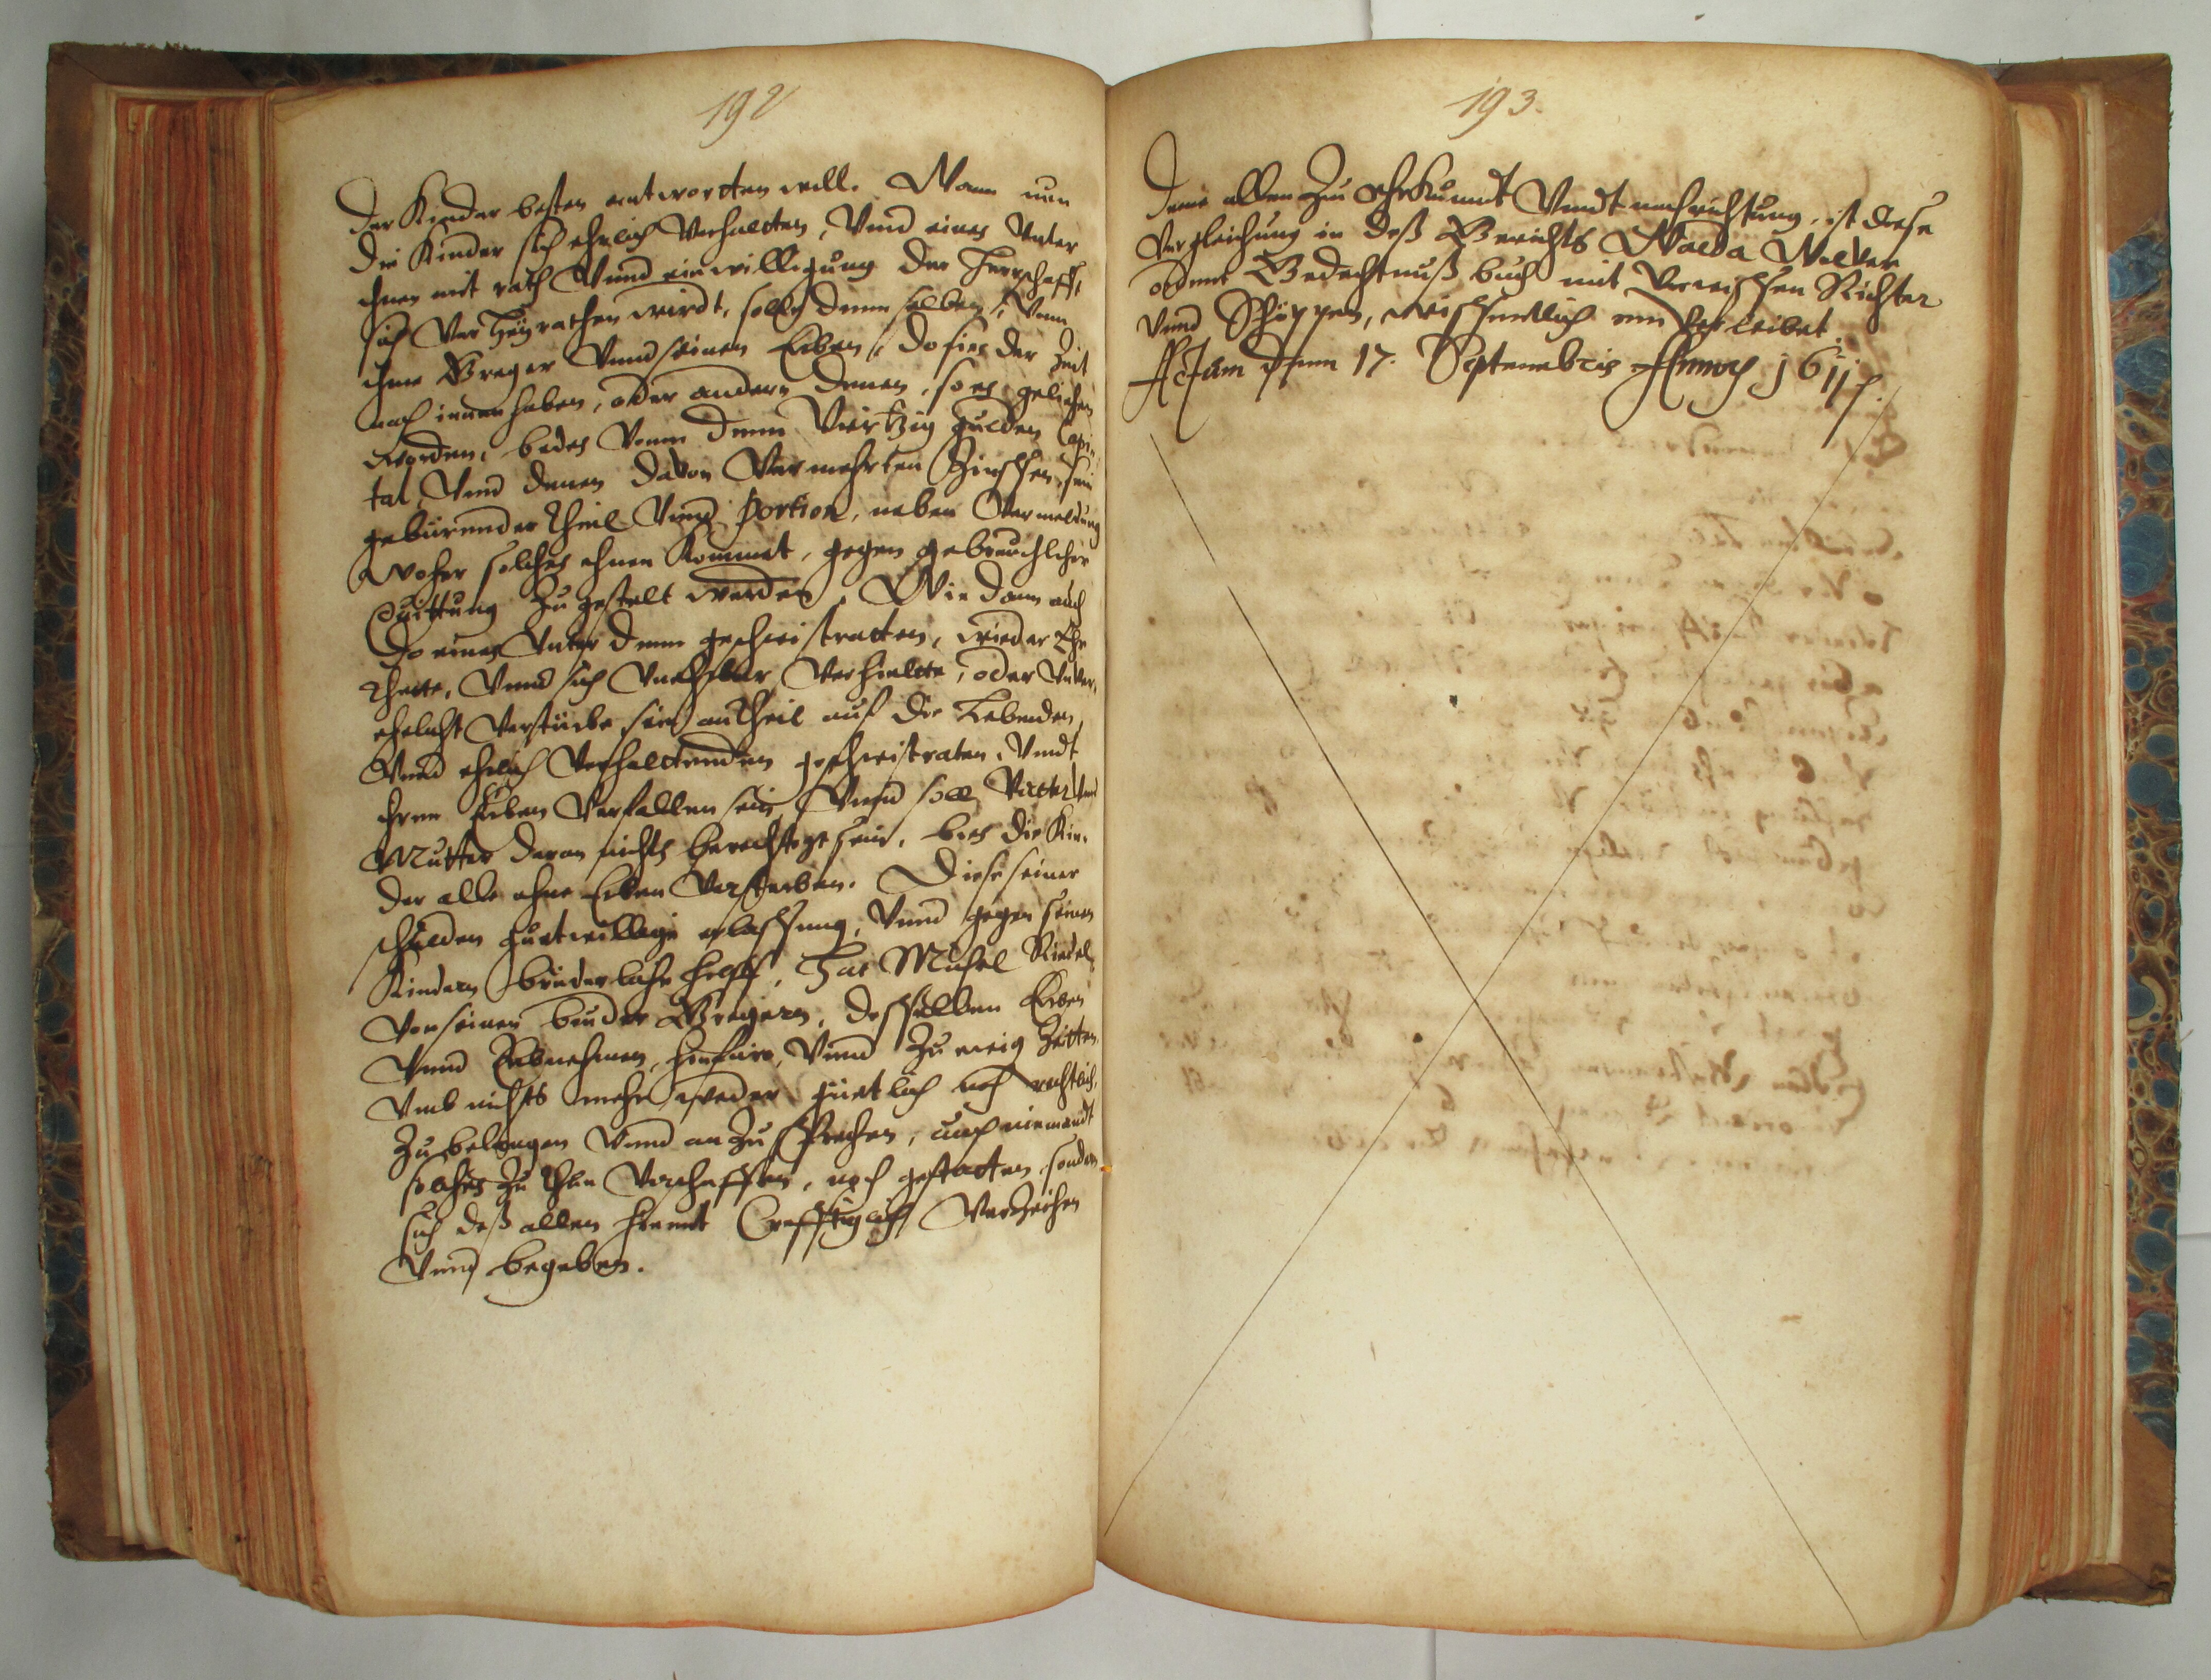 192
der Kinder besten antwortten will. Wann nun
die Kinder sich ehrlich Verhaltten, Vnd eines Vnter
ihnen mit rath Vnnd einwilligung der Herrschafft,
sich Verheyrathen wirdt, solle demselben, Vonn
ihme Greger Vnnd seinen Erben, do sies der Zeit
noch innen haben, oder andern denen, so es geliehen
worden, bedes Vonn denn Viertzig gulden Capi-
tal, Vnnd denen davon Vermehrten Zinsen, sein
gebürender theil Vnnd portion, neben Vermeldung
Woher solches ihnen Kommet, gegen gebreuchlicher
Quittung Zugestelt werden, Wie dann auch
do eines Vnter denn geschwistratten, wieder Ehr
thette, Vnnd sich Vnehrbar Verhieltte, oder Vnver-
ehelicht Verstürbe, sein antheil auf die Lebenden,
Vnnd ehrlich Verhalttenden geschwistraten, Vnndt
ihren Erben Verfallen sein, Vnnd soll Vatter Vnd
Mutter daran nichts berechtiget sein, bies die Kin-
der alle ohne Erben Versterben. Diese seiner
schulden guttwillige erlassung, Vnnd gegen seinen
Kindern brüderliche Hülff, Hat Michel Riedel,
Von seinen bruder Gregern, desselben Erben
Vnnd Erbnehmen, hinfüro, Vnnd Zu ewig Zeitten
Vmb nichts mehr weder güetlich noch rechtlich,
Zu belangen Vnnd an Zu sprechen, auch niemandt
solches Zu thun Verschaffen, noch gestatten, sondern
sich deß allen hiermit Crefftiglich Verzeihen
Vnnd begeben.
193.
Deme allen Zu Uhrkundt Vnndt nachrichtung, ist diese
Vergleichung in deß Gerichts Walda
Gedechtnuß buch mit Vorwissen Richter
Vnnd Schöppen, wissentlich ein Verleibet.
Actum denn 17. Septembris Anno 1611.